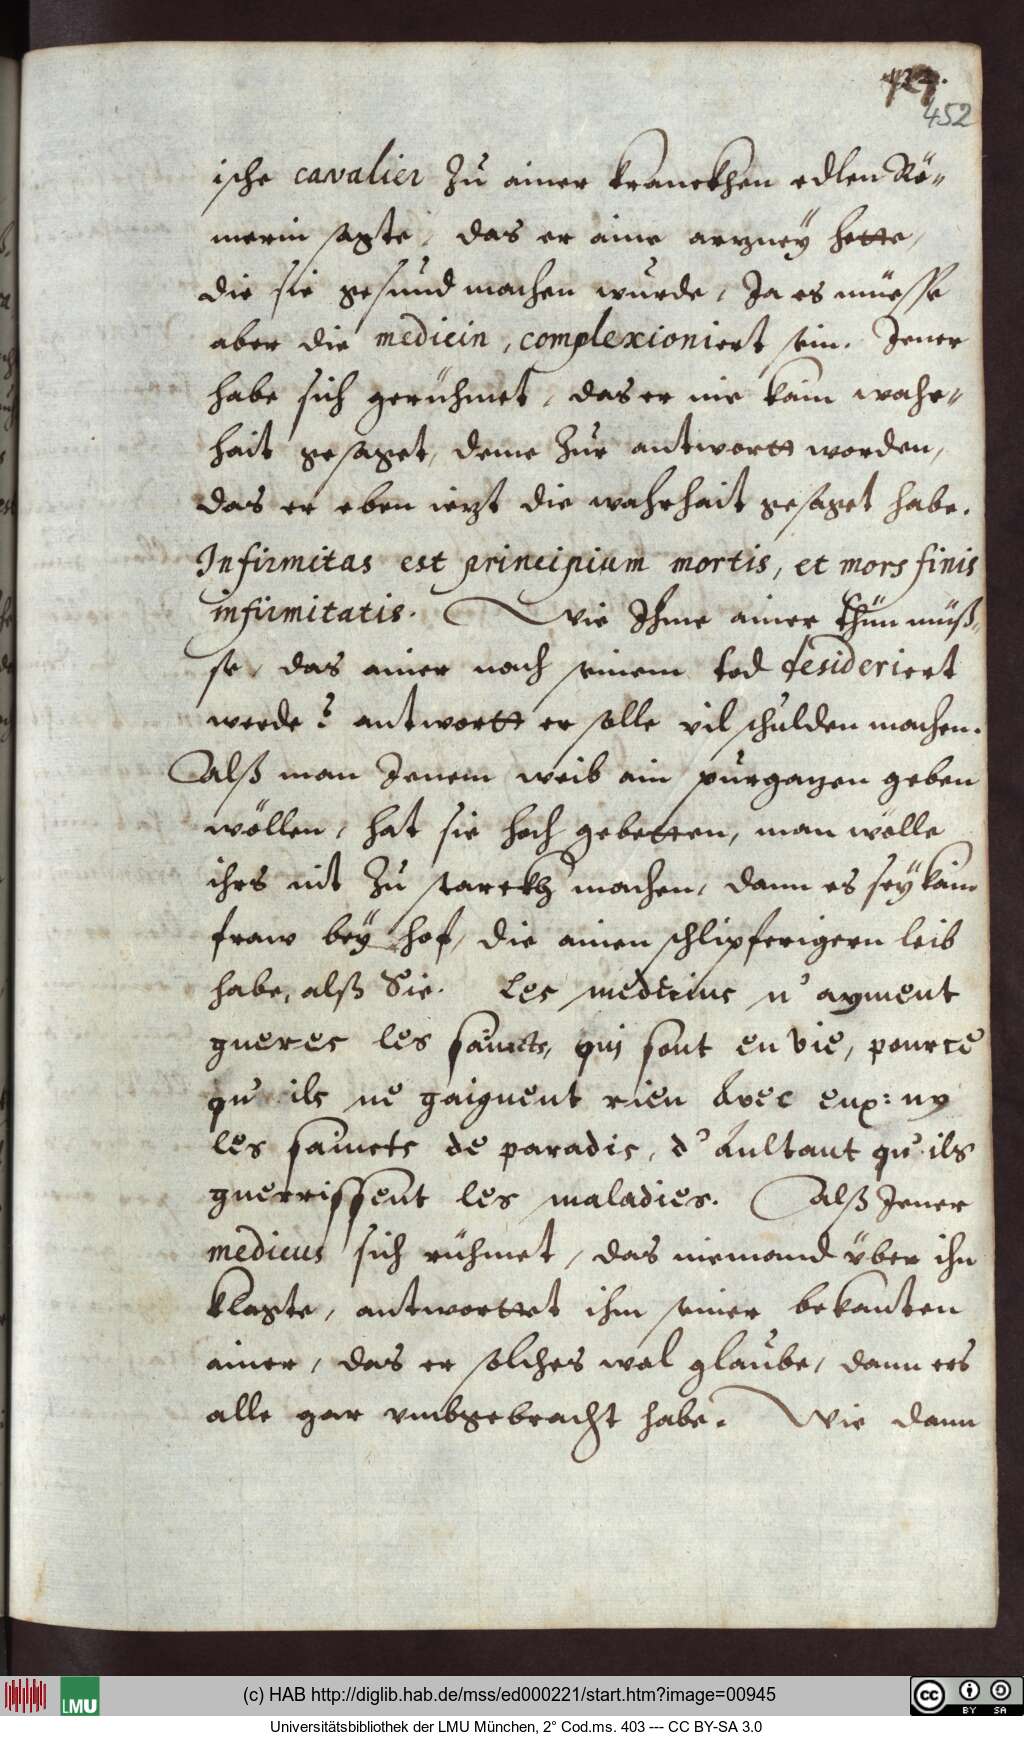 452
ische cavalier Zu ainer kranckhen edlen Rö=
merin sagte, das er aine arzney hette,
die sie gesund machen wurde, Ja es müesse
aber die medicin, complexioniert sein. Jener
habe sich gerühmet, das er nie kain wahr=
hait gesaget, deme Zur antwortt worden,
das er eben iezt die wahrhait gesaget habe.
Infirmitas est principium mortis, et mors finis
infirmitatis. Wie Ihme ainer thün müß=
se, das ainer nach seinem tod desideriert
werde? antwortt er solle vil schulden machen.
Alß man Jenem weib ain purgazen geben
wöllen, hat sie hoch gebetten, man wölle
ihrs nit Zu starckh machen, dann es sey kain
fraw bey hof, die ainen schlipferigern leib
habe, alß Sie. Les medecins n'ayment
gueres les saincts, qui sont en vie, pource
qu'ils ne gaignent rien avec eux: ny
les saincts de paradis, d'aultant qu'ils
guerrissent les maladies. Alß Jener
medicus sich rühmet, das niemand über ihn
klagte, antwortet ihm seiner bekanten
ainer, das er solches wol glaube, dann ers
alle gar vmbgebracht habe. Wie dann
LMU
(c) HAB http://diglib.hab.de/mss/ed000221/start.htm?image=00945
cc BY SA
Universitätsbibliothek der LMU München, 2° Cod.ms. 403 --- CC BY-SA 3.0